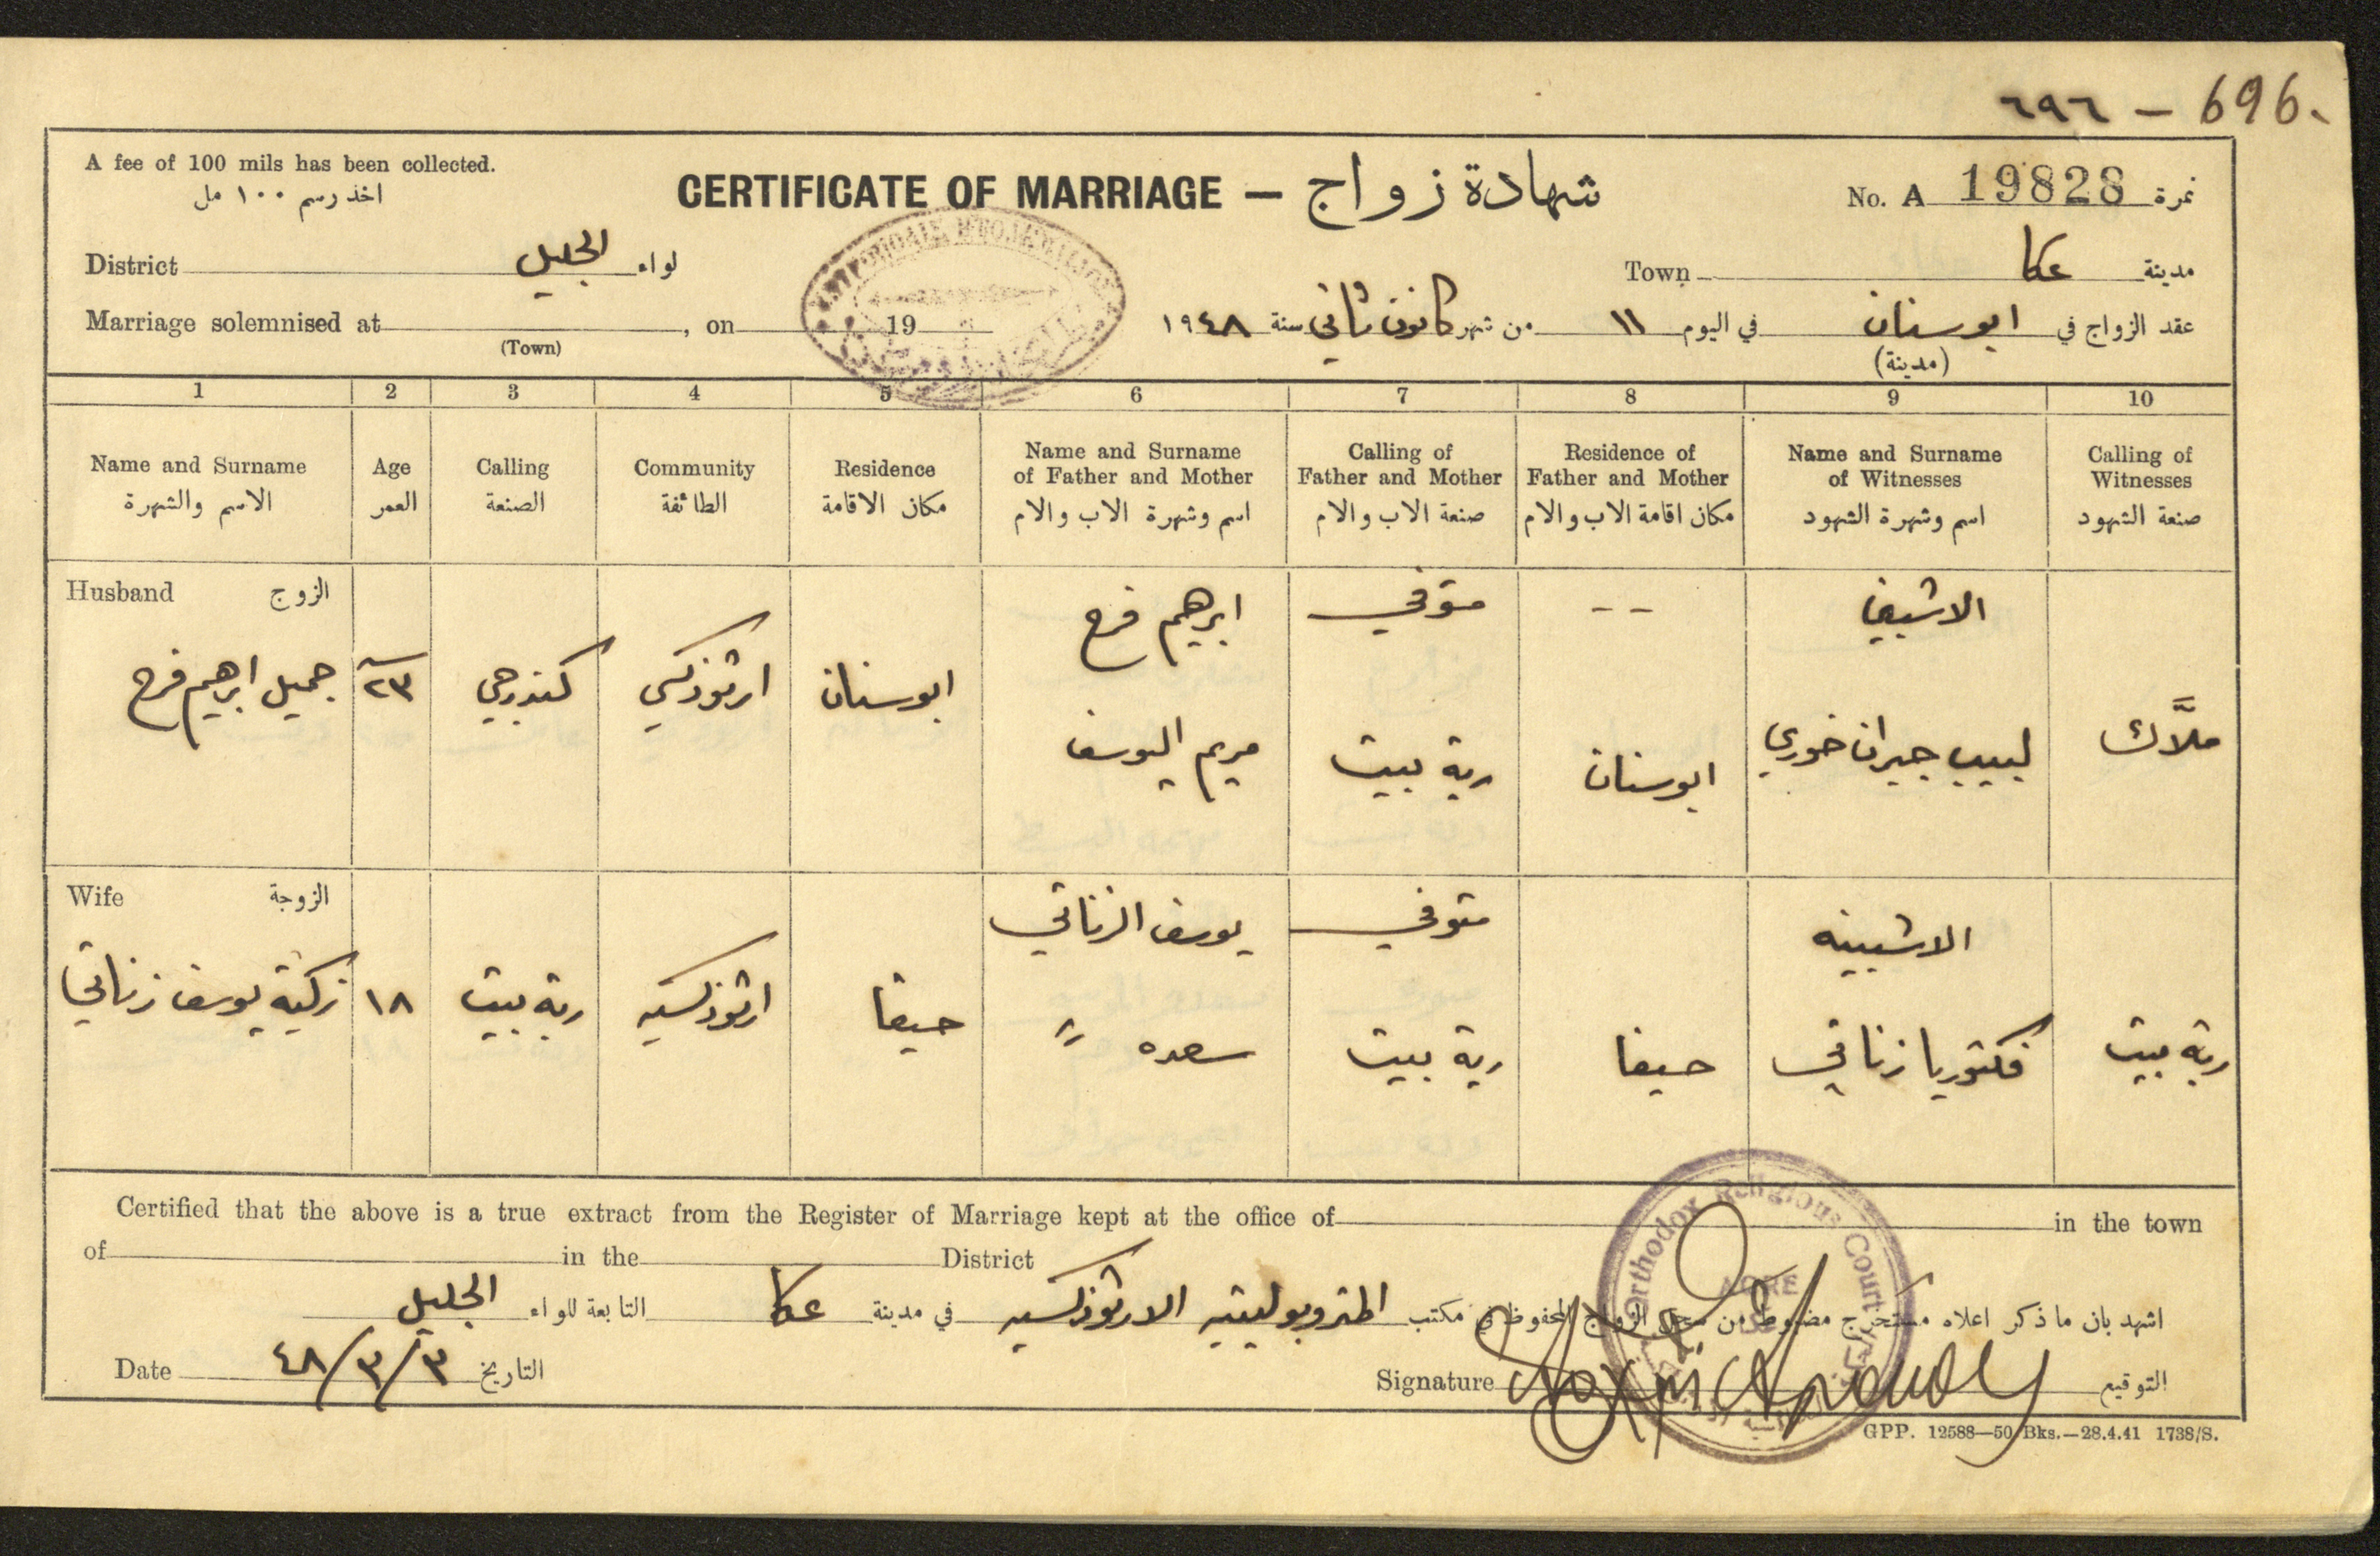 ٦٩٦ - 696.
A fee of 100 mils has been collected.
اخذ رسم ١٠٠ مل
CERTIFICATE OF MARRIAGE — شهادة زواج
No. A 19828 نمرة
District الجليل لواء
Town عكا مدينة
Marriage solemnised at , on 19
(Town)
عقد الزواج في ابوسنان في اليوم ١١ من شهر كانون ثاني سنة ١٩٤٨
(مدينة)
1 2 3 4 5 6 7 8 9 10
Name and Surname
الاسم والشهرة
Age
العمر
Calling
الصنعة
Community
الطائفة
Residence
مكان الاقامة
Name and Surname
of Father and Mother
اسم وشهرة الاب والام
Calling of
Father and Mother
صنعة الاب والام
Residence of
Father and Mother
مكان اقامة الاب والام
Name and Surname
of Witnesses
اسم وشهرة الشهود
Calling of
Witnesses
صنعة الشهود
Husband الزوج
جميل ابرهيم فرح
٢٣
كندرجي
ارثوذكسي
ابوسنان
ابرهيم فرح
مريم اليوسف
متوفي
ربة بيت
--
ابوسنان
الاشبين
لبيب جبران خوري
ملَّاك
Wife الزوجة
زكية يوسف زناتي
١٨
ربة بيت
ارثوذكسيه
حيفا
يوسف الزناتي
سعده "
متوفي
ربة بيت
حيفا
الاشبينه
فكتوريا زناتي
ربة بيت
Certified that the above is a true extract from the Register of Marriage kept at the office of in the town
of in the District
اشهد بان ما ذكر اعلاه مستخرج مضبوط من سجل الزواج المحفوظ في مكتب المتروبوليتيه الارثوذكسيه في مدينة عكا التابعة للواء الجليل
Date ٤٨/٣/٣ التاريخ
Signature التوقيع
Orthodox Religious Court
ACRE
GPP. 12588—50 Bks.—28.4.41 1738/S.